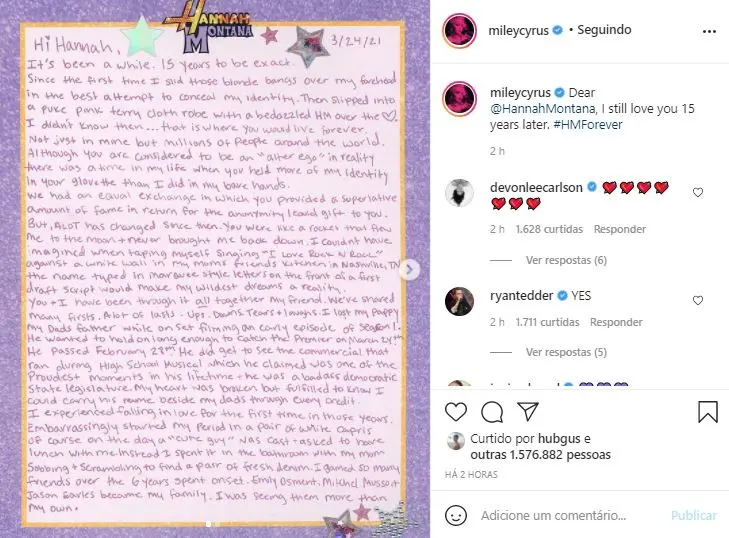 HANNAH
MONTANA
Hi Hannah,
3/24/21
It's been a while. 15 years to be exact.
Since the first time I slid those blonde bangs over my forehead
in the best attempt to conceal my identity. Then slipped into
a puke pink terry cloth robe with a bedazzled HM over the ♡.
I didn't know then... that is where you would live forever.
Not just in mine but millions of people around the world.
Although you are considered to be an "alter ego" in reality
there was a time in my life when you held more of my identity
in your glove than I did in my bare hands.
We had an equal exchange in which you provided a superlative
amount of fame in return for the anonymity I could gift to you.
But, ALOT has changed since then. You were like a rocket that flew
me to the moon + never brought me back down. I couldn't have
imagined when taping myself singing "I Love Rock N Roll"
against a white wall in my moms friends kitchen in Nashville, TN
the name typed in marquee style letters on the front of a first
draft script would make my wildest dreams a reality.
You + I have been through it all together my friend. We've shared
many firsts. Alot of lasts. Ups. Downs. Tears + laughs. I lost my Pappy
my Dads father while on set filming an early episode of season 1.
He wanted to hold on long enough to catch the Premier on March 24th
He passed February 28th. He did get to see the commercial that
ran during High School Musical which he claimed was one of the
Proudest moments in his lifetime + he was a badass democratic
State legislature. My heart was broken but fulfilled to know I
could carry his name beside my dads through every credit.
I experienced falling in love for the first time in those years.
Embarrassingly started my period in a pair of white capris
of course on the day a "cute guy" was cast + asked to have
lunch with me. Instead I spent it in the bathroom with my mom
Sobbing + Scrambling to find a pair of fresh denim. I gained so many
friends over the 6 years spent on set. Emily Osment. Mitchel Musso +
Jason Earles became my family. I was seeing them more than
my own.
mileycyrus • Seguindo
mileycyrus Dear
@HannahMontana, I still love you 15
years later. #HMForever
2 h
devonleecarlson ❤️❤️❤️❤️
❤️❤️❤️
2 h 1.628 curtidas Responder
Ver respostas (6)
ryantedder YES
2 h 1.711 curtidas Responder
Ver respostas (5)
Curtido por hubgus e
outras 1.576.882 pessoas
HÁ 2 HORAS
Adicione um comentário...
Publicar